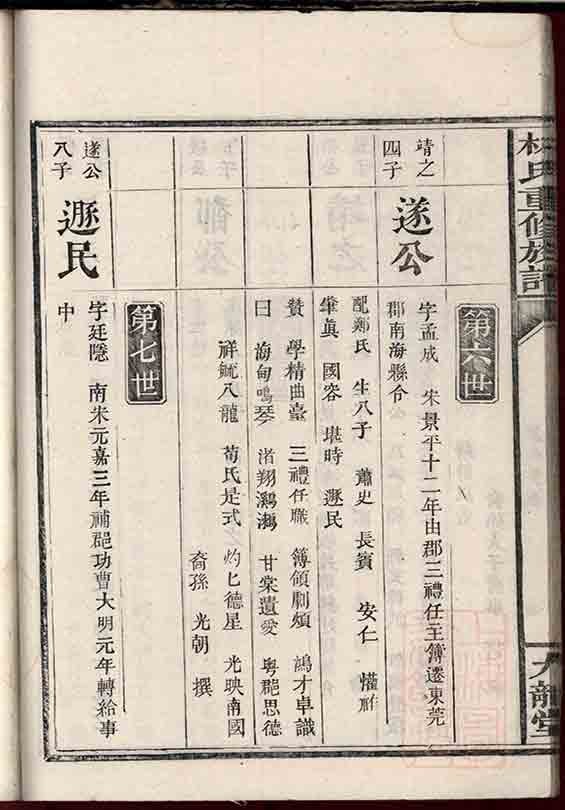 林氏重修族譜
九龍堂
第六世
靖之
四子
遂公
字孟成 宋景平十二年由郡三禮任主簿遷東莞
郡南海縣令
配鄭氏 生八子 蕭史 長賓 安仁 懂
肇眞 國容 堪時 遯民
贊 學精曲臺 三禮任職 簿領劇煩 鴻才卓識
曰 海甸鳴琴 渚翔鸂鶒 甘棠遺愛 粤郡思德
祥毓八龍 荀氏是式 灼匕德星 光映南國
裔孫 光朝 撰
第七世
遂公
八子
遯民
字廷隱 南宋元嘉三年補郡功曹大明元年轉給事
中